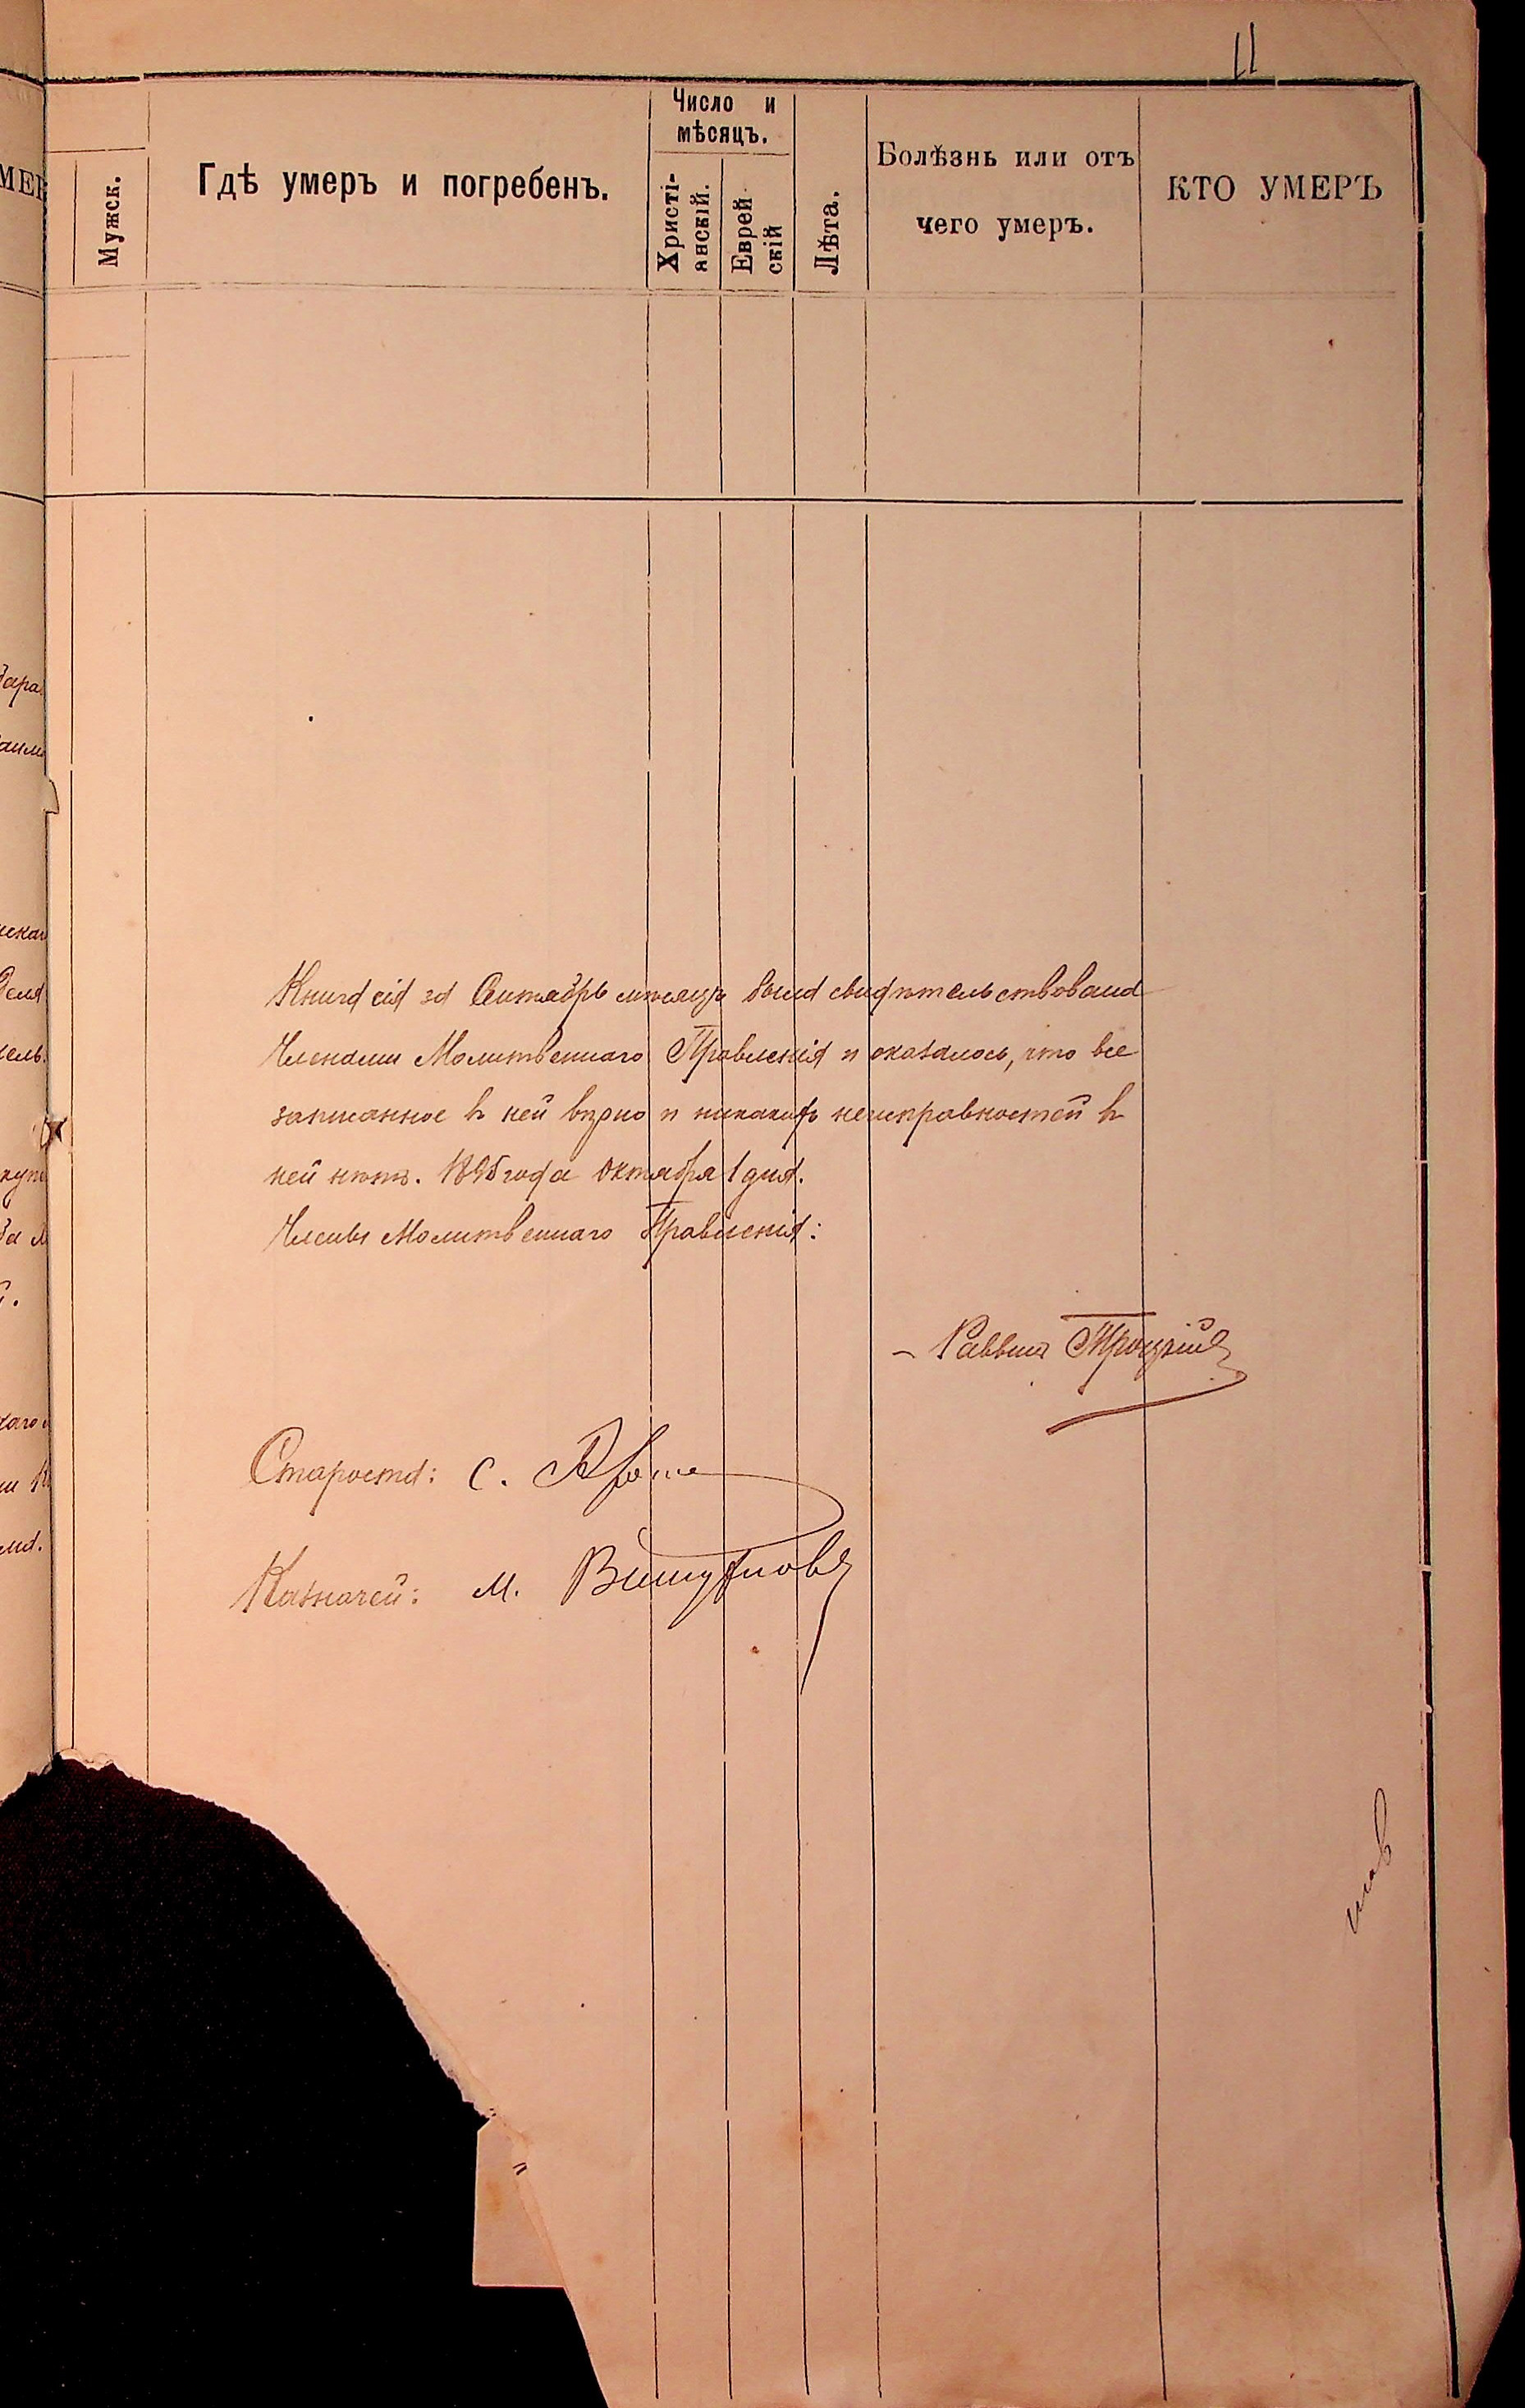 11
Мужск.
Гдѣ умеръ и погребенъ.
Число и
мѣсяцъ.
Христі-
анскій.
Еврей-
скій
Лѣта.
Болѣзнь или отъ
чего умеръ.
КТО УМЕРЪ
Книга сія за Сентябрь мѣсяцъ была свидѣтельствована
Членами Молитвеннаго Правленія и оказалось, что все
записанное въ ней вѣрно и никакихъ неисправностей въ
ней нѣтъ. 1895 года Октября 1 дня.
Члены Молитвеннаго Правленія:
Раввинъ Троцкій
Староста: С.
Казначей: М.